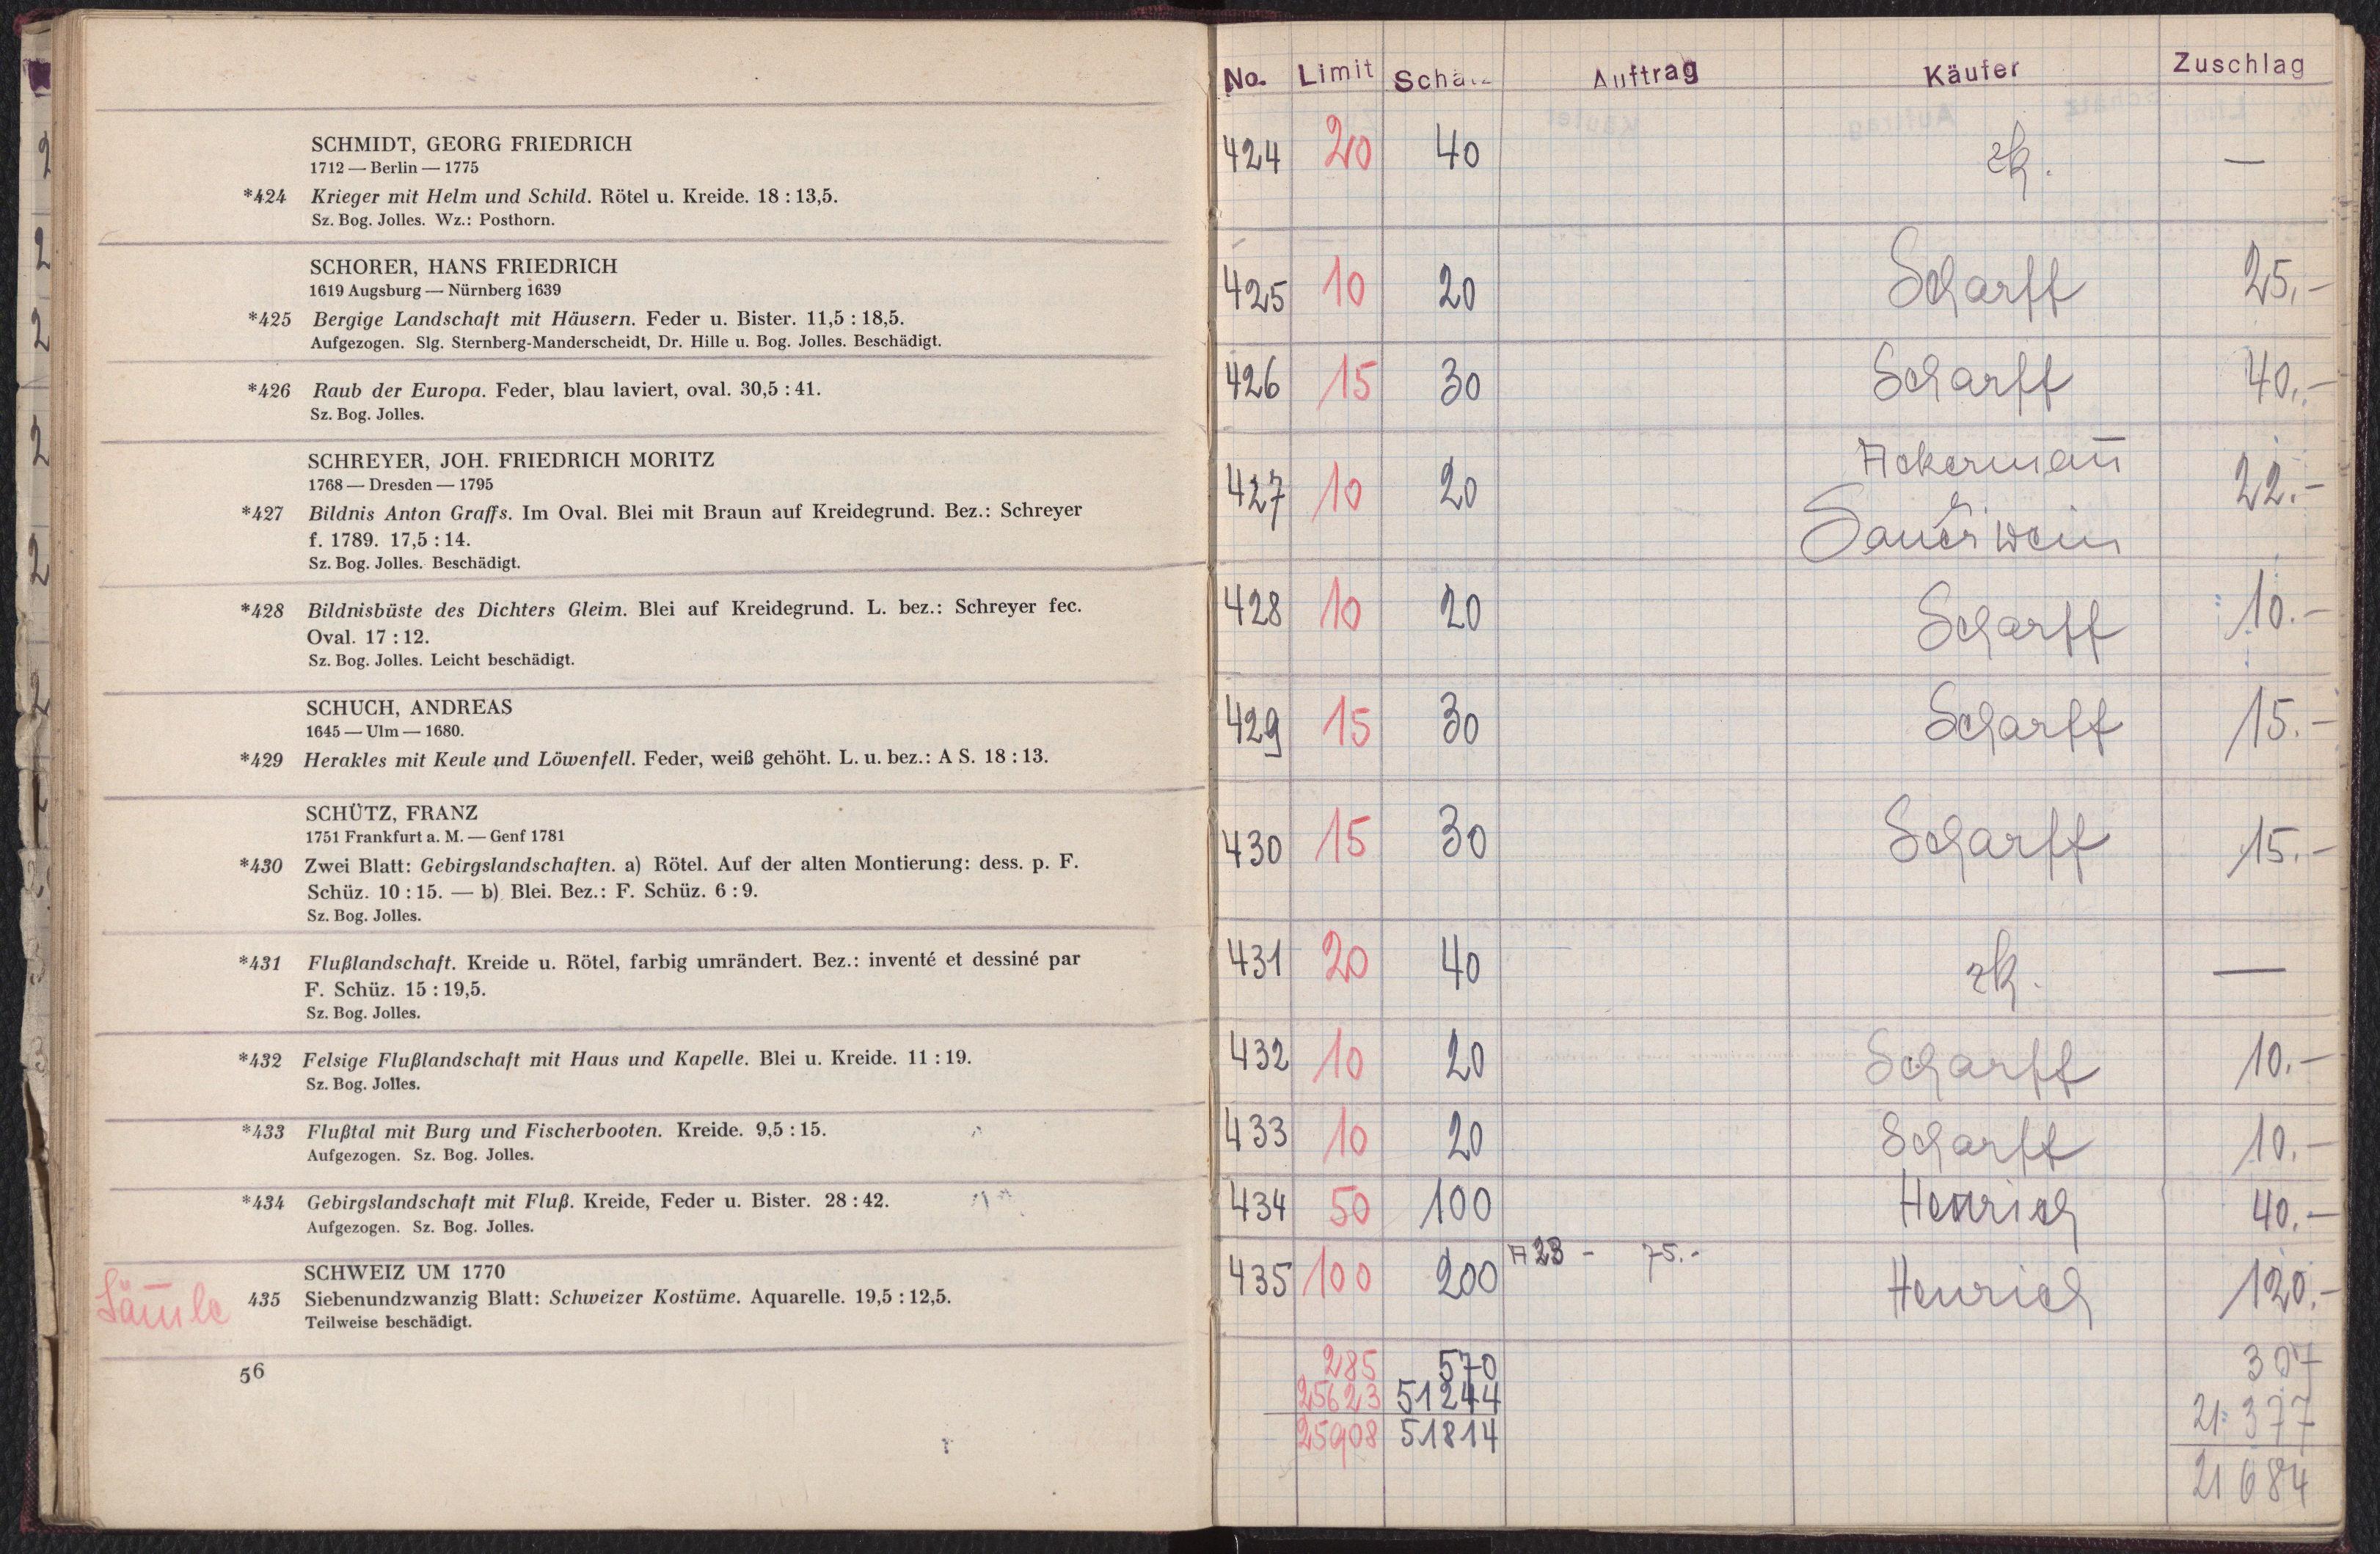 SCHMIDT, GEORG FRIEDRICH
1712 — Berlin — 1775
*424 Krieger mit Helm und Schild. Rötel u. Kreide. 18 : 13,5.
Sz. Bog. Jolles. Wz.: Posthorn.
SCHORER, HANS FRIEDRICH
1619 Augsburg — Nürnberg 1639
*425 Bergige Landschaft mit Häusern. Feder u. Bister. 11,5 : 18,5.
Aufgezogen. Slg. Sternberg-Manderscheidt, Dr. Hille u. Bog. Jolles. Beschädigt.
*426 Raub der Europa. Feder, blau laviert, oval. 30,5 : 41.
Sz. Bog. Jolles.
SCHREYER, JOH. FRIEDRICH MORITZ
1768 — Dresden — 1795
*427 Bildnis Anton Graffs. Im Oval. Blei mit Braun auf Kreidegrund. Bez.: Schreyer
f. 1789. 17,5 : 14.
Sz. Bog. Jolles. Beschädigt.
*428 Bildnisbüste des Dichters Gleim. Blei auf Kreidegrund. L. bez.: Schreyer fec.
Oval. 17 : 12.
Sz. Bog. Jolles. Leicht beschädigt.
SCHUCH, ANDREAS
1645 — Ulm — 1680.
*429 Herakles mit Keule und Löwenfell. Feder, weiß gehöht. L. u. bez.: A S. 18 : 13.
SCHÜTZ, FRANZ
1751 Frankfurt a. M. — Genf 1781
*430 Zwei Blatt: Gebirgslandschaften. a) Rötel. Auf der alten Montierung: dess. p. F.
Schüz. 10 : 15. — b) Blei. Bez.: F. Schüz. 6 : 9.
Sz. Bog. Jolles.
*431 Flußlandschaft. Kreide u. Rötel, farbig umrändert. Bez.: inventé et dessiné par
F. Schüz. 15 : 19,5.
Sz. Bog. Jolles.
*432 Felsige Flußlandschaft mit Haus und Kapelle. Blei u. Kreide. 11 : 19.
Sz. Bog. Jolles.
*433 Flußtal mit Burg und Fischerbooten. Kreide. 9,5 : 15.
Aufgezogen. Sz. Bog. Jolles.
*434 Gebirgslandschaft mit Fluß. Kreide, Feder u. Bister. 28 : 42.
Aufgezogen. Sz. Bog. Jolles.
SCHWEIZ UM 1770
435 Siebenundzwanzig Blatt: Schweizer Kostüme. Aquarelle. 19,5 : 12,5.
Teilweise beschädigt.
56
No. Limit Schätz Auftrag Käufer Zuschlag
424 20 40 zk. —
425 10 20 Scharff 25,-
426 15 30 Scharff 40.-
427 10 20 Ackermann 22.-
Sauerwein
428 10 20 Scharff 10.-
429 15 30 Scharff 15.-
430 15 30 Scharff 15.-
431 20 40 zk. —
432 10 20 Scharff 10.-
433 10 20 Scharff 10.-
434 50 100 Henrich 40.-
435 100 200 A 23 - 75.- Henrich 120.-
285 570 307
25623 51244 21377
25908 51814 21684